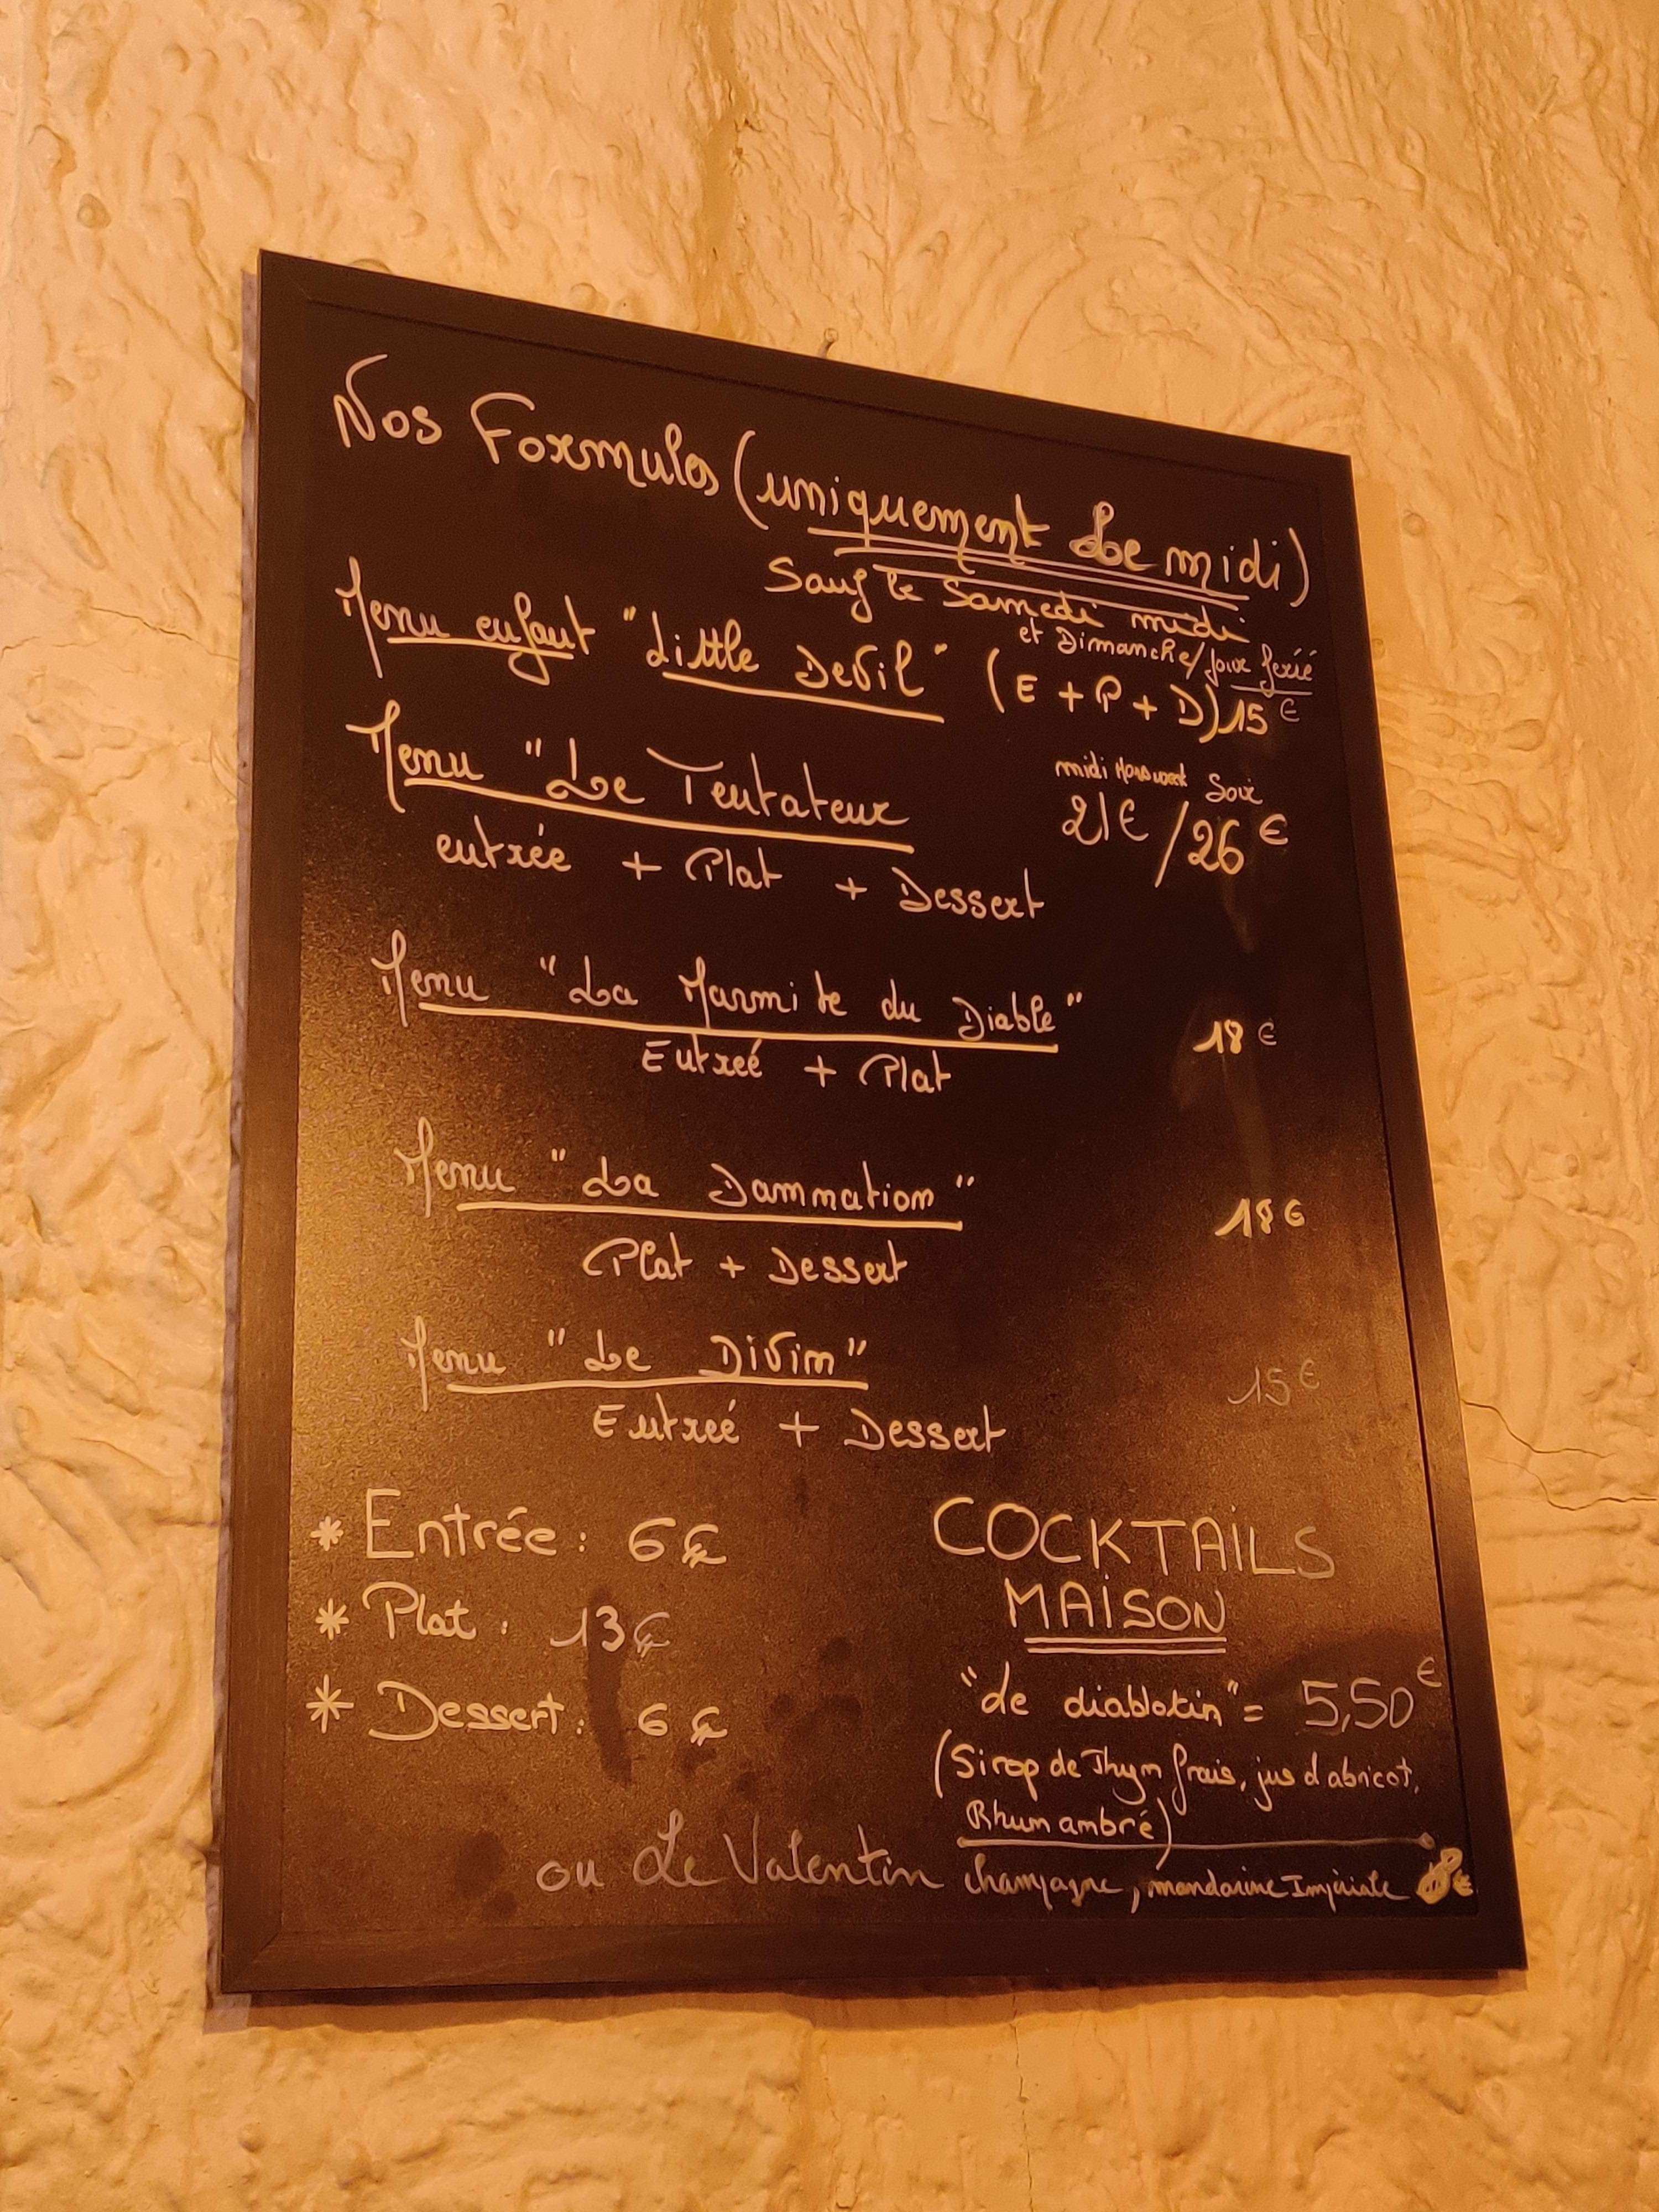 Nos Formules (uniquement Le midi)
Sauf le Samedi midi
et Dimanche/jour ferié
Menu enfant "Little Devil" (E + P + D) 15 €
midi Hors week Soir
Menu "Le Tentateur 21€ / 26 €
entrée + Plat + Dessert
Menu "La Marmite du Diable" 18 €
Entreé + Plat
Menu "La Damnation" 18€
Plat + Dessert
Menu "Le Divin" 15€
Entreé + Dessert
* Entrée : 6€
* Plat : 13€
* Dessert : 6€
COCKTAILS
MAISON
"Le diablotin" = 5,50€
(Sirop de Thym frais, jus d'abricot,
Rhum ambré)
ou Le Valentin champagne, mandarine Impériale 8€